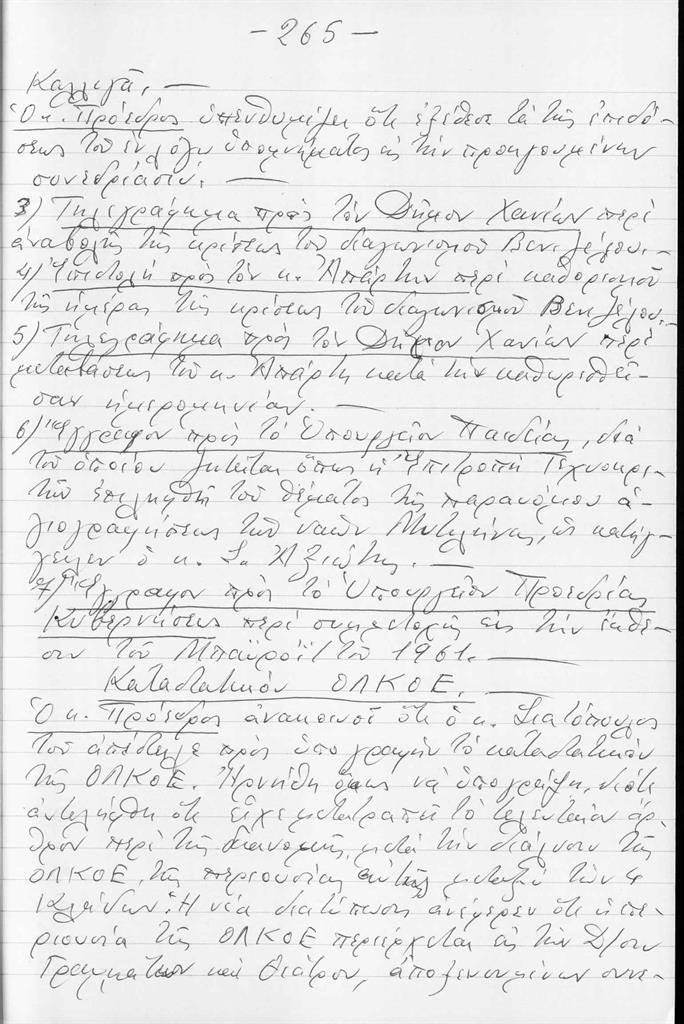 - 265 -
Καλλιγᾶ. —
Ὁ κ. Πρόεδρος ὑπενθυμίζει ὅτι ἐξέθεσε τὰ τῆς ἐπιδό-
σεως τοῦ ἐν λόγῳ ὑπομνήματος εἰς τὴν προηγουμένην
συνεδρίασιν. —
3) Τηλεγράφημα πρὸς τὸν Δῆμον Χανίων περὶ
ἀναβολῆς τῆς κρίσεως τοῦ διαγωνισμοῦ Βενιζέλου.-
4) Ἐπιστολὴ πρὸς τὸν κ. Ἀπάρτην περὶ καθορισμοῦ
τῆς ἡμέρας τῆς κρίσεως τοῦ διαγωνισμοῦ Βενιζέλου.-
5) Τηλεγράφημα πρὸς τὸν Δῆμον Χανίων περὶ
μεταβάσεως τοῦ κ. Ἀπάρτη κατὰ τὴν καθορισθεῖ-
σαν ἡμερομηνίαν. —
6) Ἔγγραφον πρὸς τὸ Ὑπουργεῖον Παιδείας, διὰ
τοῦ ὁποίου ζητεῖται ὅπως ἡ Ἐπιτροπὴ Τεχνοκρι-
τῶν ἐπιληφθῆ τοῦ θέματος τῆς παρανόμου ἁ-
γιογραφήσεως τῶν ναῶν Μυτιλήνης, ὡς κατήγ-
γειλεν ὁ κ. Σ. Ἀξιώτης. —
7) Ἔγγραφον πρὸς τὸ Ὑπουργεῖον Προεδρίας
Κυβερνήσεως περὶ συμμετοχῆς εἰς τὴν ἔκθε-
σιν τοῦ Μπαϋρόϊτ τοῦ 1961. —
Καταστατικὸν ΟΛΚΟΕ. —
Ὁ κ. Πρόεδρος ἀνακοινοῖ ὅτι ὁ κ. Σιατόπουλος
τοῦ ἀπέστειλε πρὸς ὑπογραφὴν τὸ καταστατικὸν
τῆς ΟΛΚΟΕ. Ἠρνήθη ὅμως νὰ ὑπογράψῃ, διότι
ἀντελήφθη ὅτι εἶχε μετατραπῆ τὸ τελευταῖον ἄρ-
θρον περὶ τῆς διανομῆς, μετὰ τὴν διάλυσιν τῆς
ΟΛΚΟΕ, τῆς περιουσίας αὐτῆς μεταξὺ τῶν 4
Κλάδων. Ἡ νέα διατύπωσις ἀνέφερεν ὅτι ἡ πε-
ριουσία τῆς ΟΛΚΟΕ περιέρχεται εἰς τὴν Δ/σιν
Γραμμάτων καὶ Θεάτρου, ἀποξενουμένων οὕτω-